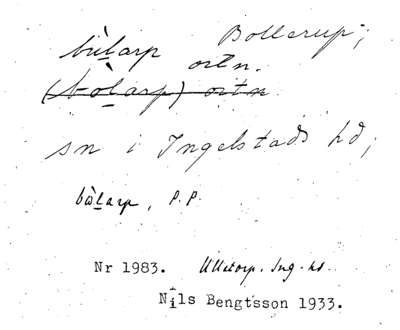 Bollerup;
bùlarp ortn.
(bòlarp) ortn
sn i Ingelstads hd;
bòlarp, P.P.
Nr 1983. Ulletorp. Ing. hd.
Nils Bengtsson 1933.